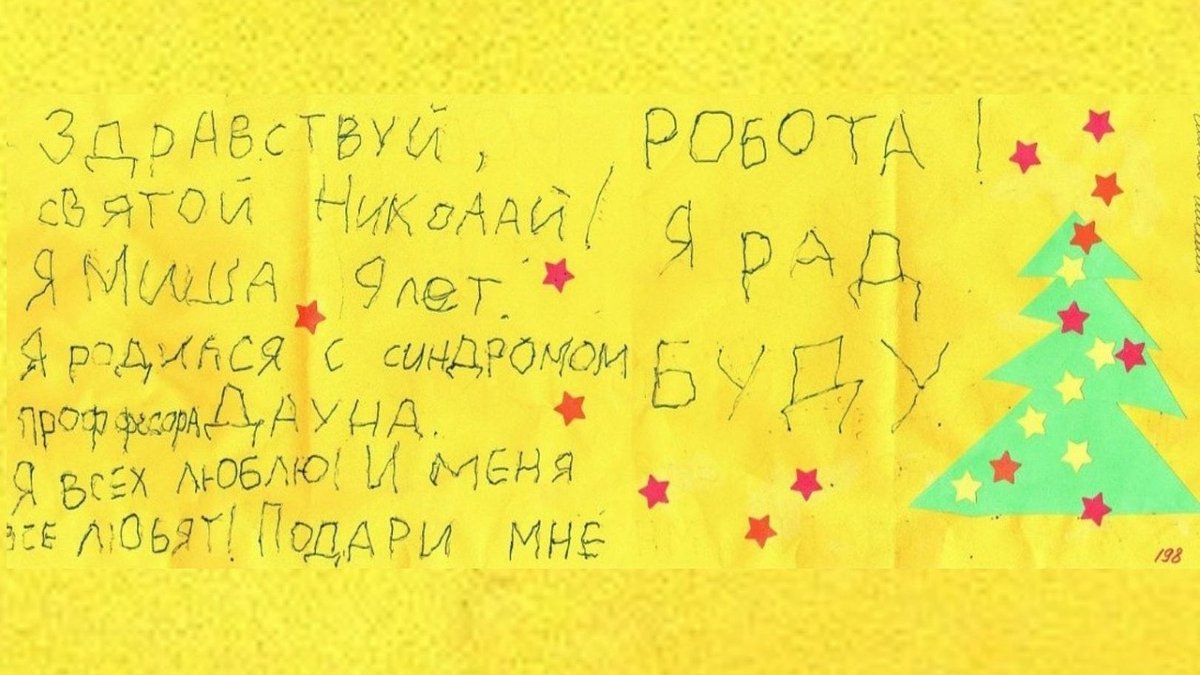 Здравствуй,
святой Николай!
Я Миша 9 лет.
Я родился с синдромом
профффесора Дауна.
Я всех люблю! И меня
все любят! Подари мне
РОБОТА!
Я РАД
БУДУ
198